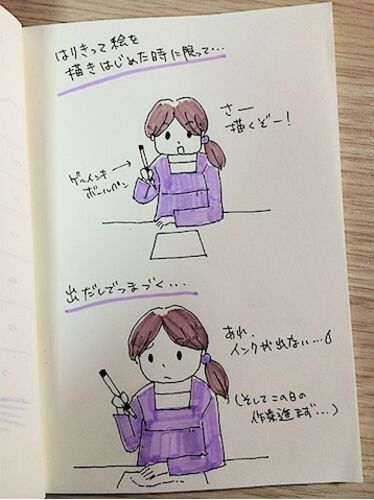 はりきって絵を
描きはじめた時に限って…
さー
描くぞー!
ゲルインキ
ボールペン
出だしでつまづく…
あれ、
インクが出ない…
(そしてこの日の
作業進まず…)